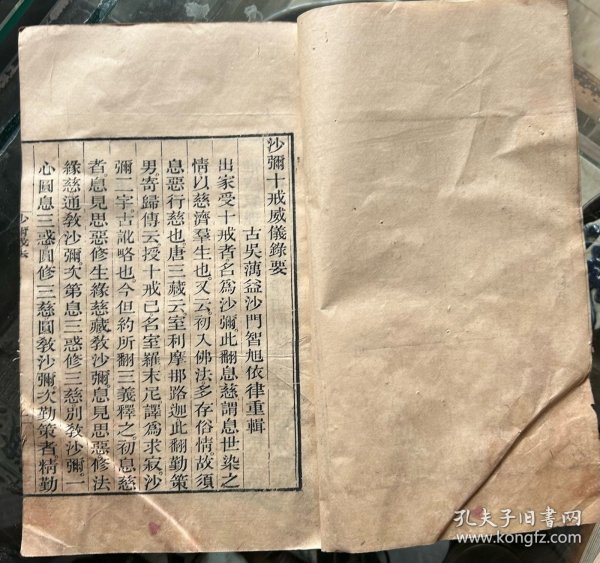 沙彌十戒威儀錄要
古吳蕅益沙門智旭依律重輯
出家受十戒者名爲沙彌此翻息慈謂息世染之
情以慈濟羣生也又云初入佛法多存俗情故須
息惡行慈也唐三藏云室利摩那路迦此翻勤策
男寄歸傳云授十戒已名室羅末尼譯爲求寂沙
彌二字古訛略也今但約所翻三義釋之初息慈
者息見思惡修生緣慈藏敎沙彌息見思惡修法
緣慈通敎沙彌次第息三惑修三慈別敎沙彌一
心圓息三惑圓修三慈圓敎沙彌次勤策者精勤
孔夫子旧書网
www.kongfz.com